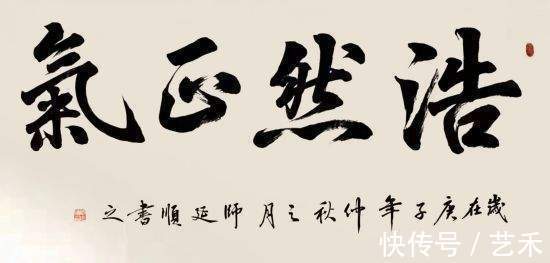 浩然正氣
歲在庚子年仲秋之月師延順書之
快传号/艺禾